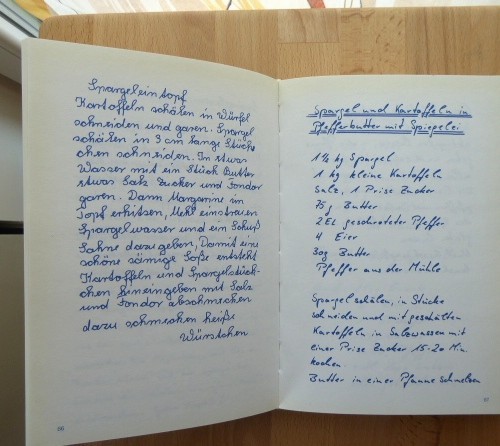 Spargeleintopf
Kartoffeln schälen in Würfel
schneiden und garen. Spargel
schälen in 3 cm lange Stück-
chen schneiden. In etwas
Wasser mit ein Stück Butter
etwas Salz Zucker und Fondor
garen. Dann Margarine in
Topf erhitzen, Mehl einstreuen
Spargelwasser und ein Schuß
Sahne dazugeben, Damit eine
schöne sämige Soße entsteht
Kartoffeln und Spargelstück-
chen hineingeben mit Salz
und Fondor abschmecken
dazu schmecken heiße
Würstchen
Spargel und Kartoffeln in
Pfefferbutter mit Spiegelei
1½ kg Spargel
1 kg kleine Kartoffeln
Salz, 1 Prise Zucker
75g Butter
2 EL geschroteter Pfeffer
4 Eier
30g Butter
Pfeffer aus der Mühle
Spargel schälen, in Stücke
schneiden und mit geschälten
Kartoffeln in Salzwasser mit
einer Prise Zucker 15-20 Min.
kochen.
Butter in einer Pfanne schmelzen